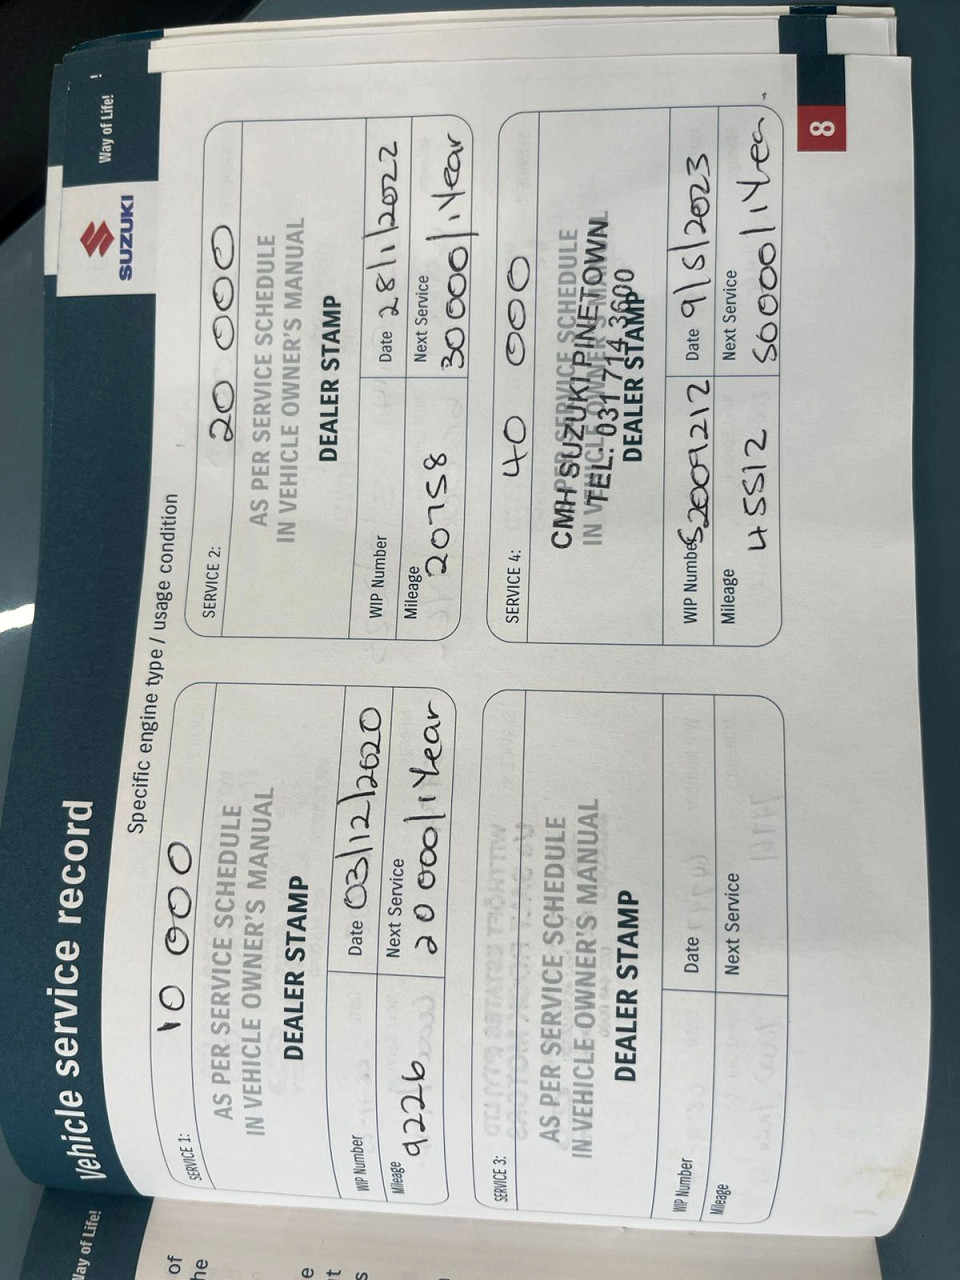 Vehicle service record
SUZUKI
Way of Life!
Specific engine type / usage condition
SERVICE 1: 10 000
AS PER SERVICE SCHEDULE
IN VEHICLE OWNER'S MANUAL
DEALER STAMP
WIP Number
Date 03/12/2020
Mileage 9226
Next Service 20 000/1 Year
SERVICE 2: 20 000
AS PER SERVICE SCHEDULE
IN VEHICLE OWNER'S MANUAL
DEALER STAMP
WIP Number
Date 28/1/2022
Mileage 20758
Next Service 30000/1 Year
SERVICE 3:
AS PER SERVICE SCHEDULE
IN VEHICLE OWNER'S MANUAL
DEALER STAMP
WIP Number
Date
Mileage
Next Service
SERVICE 4: 40 000
AS PER SERVICE SCHEDULE
IN VEHICLE OWNER'S MANUAL
CMH SUZUKI PINETOWN
TEL: 031 714 3600
DEALER STAMP
WIP Number S2009212
Date 9/5/2023
Mileage 45512
Next Service 50000/1 Year
8
Way of Life!
of
he